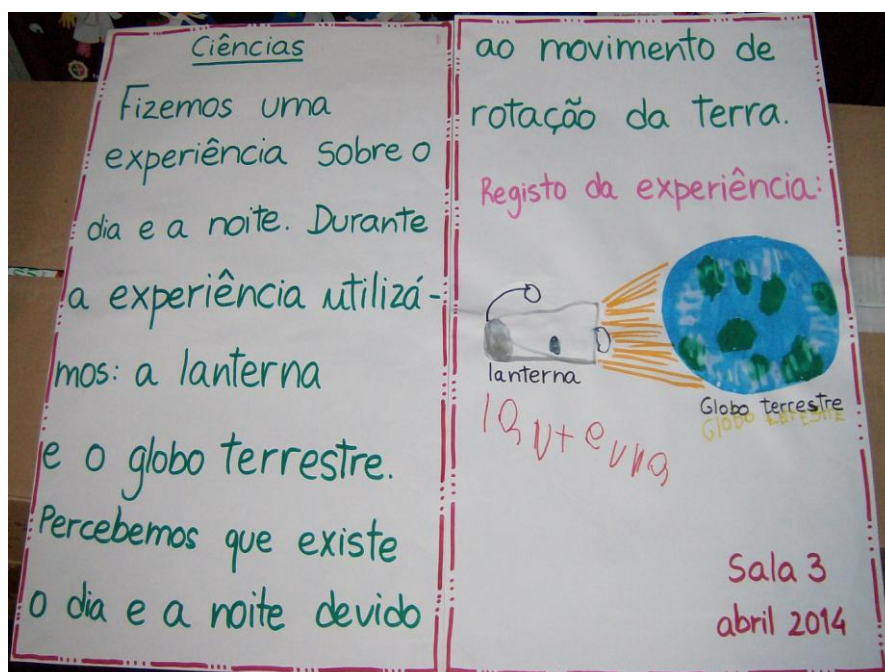 Ciências
Fizemos uma
experiência sobre o
dia e a noite. Durante
a experiência utilizá-
mos: a lanterna
e o globo terrestre.
Percebemos que existe
o dia e a noite devido
ao movimento de
rotação da terra.
Registo da experiência:
lanterna
lanterna
Globo terrestre
GLOBO TERRESTRE
Sala 3
abril 2014